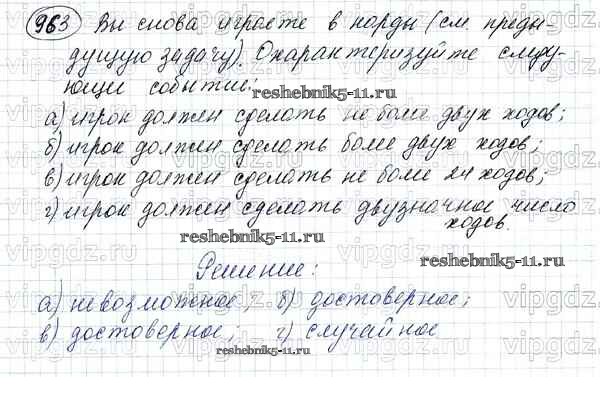 963 Вы снова играете в нарды (см. преды-
дущую задачу). Охарактеризуйте следу-
ющие события:
reshebnik5-11.ru
а) игрок должен сделать не более двух ходов;
б) игрок должен сделать более двух ходов;
в) игрок должен сделать не более 24 ходов;
г) игрок должен сделать двузначное число
ходов.
reshebnik5-11.ru
reshebnik5-11.ru
Решение:
а) невозможное; б) достоверное;
в) достоверное; г) случайное
reshebnik5-11.ru
vipgdz.ru